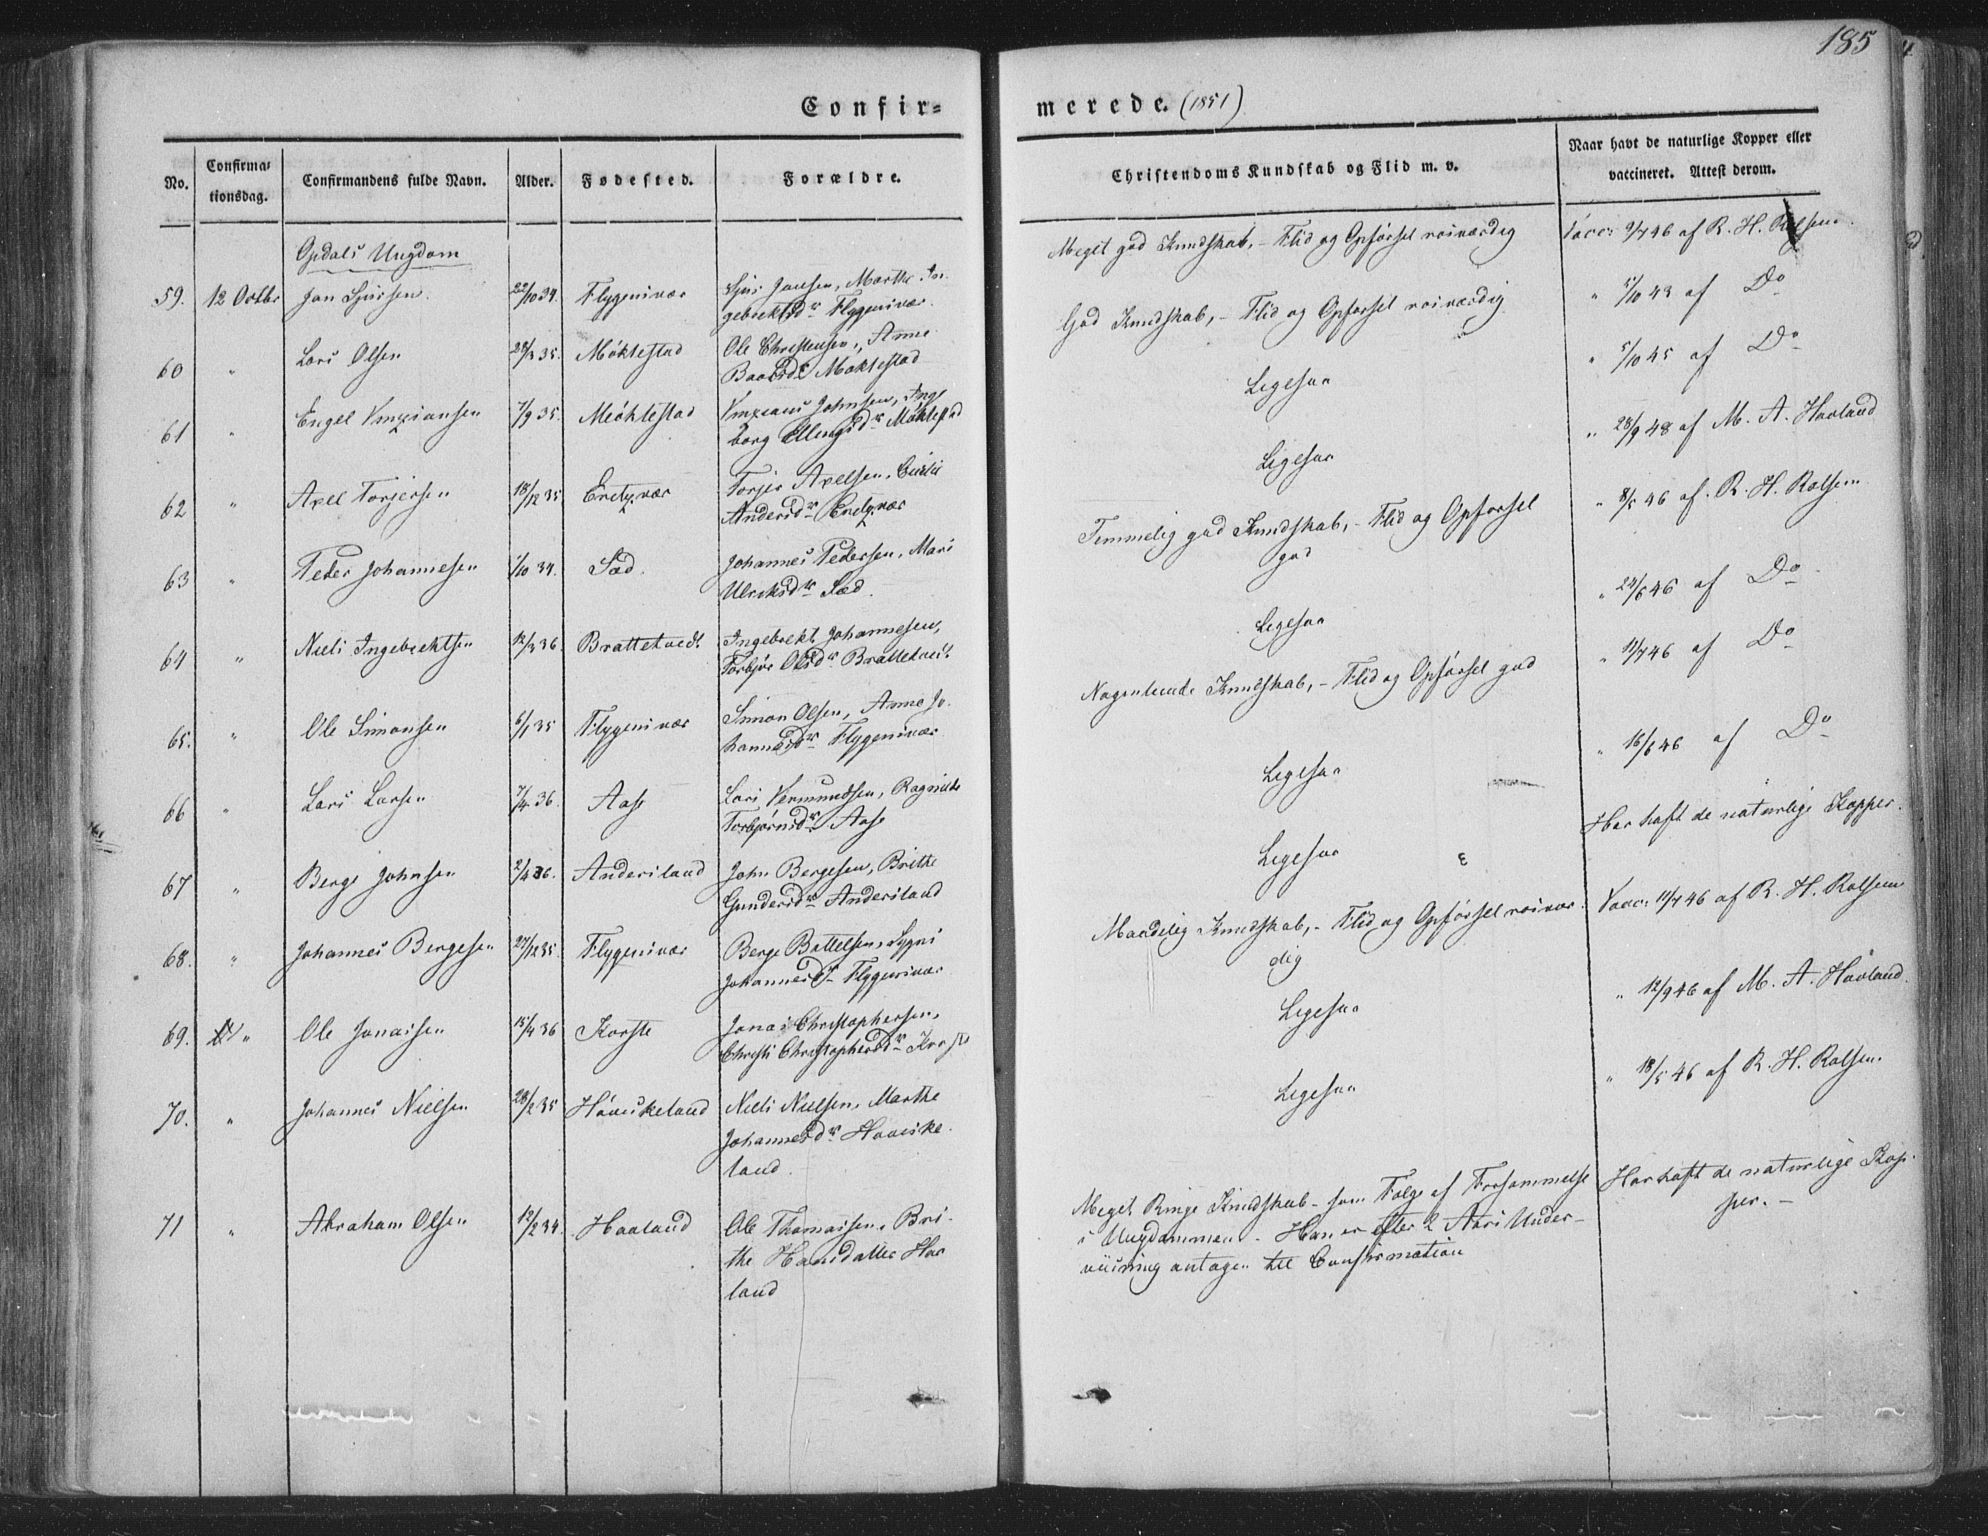 185
Confir=
merede. (1851)
No.
Confirma=
tionsdag.
Confirmandens fulde Navn.
Alder.
Fødested.
Forældre.
Christendoms Kundskab og Flid m. v.
Naar havt de naturlige Kopper eller
vaccineret. Attest derom.
Opdals Ungdom
59. 12 Octbr Jon Sjursen. 22/10 34. Flygensvær Sjur Jansen, Marthe In-
gebrektsdr Flygensvær.
Meget god Kundskab, - Flid og Opførsel roisværdig
Vacc: 9/7 46 af R. H. Rolfsen
60 " Lars Olsen 28/3 35. Møklestad Ole Christensen, Anne
Baardsdr Møklestad
God Kundskab, - Flid og Opførsel roisværdig
" 5/10 43 af Do
61 " Engel Vinziansen 7/9 35. Møklestad Vinzians Johnsen, Inge
borg Ellingsdr Møklestad
Ligesaa
" 5/10 45 af Do
62 " Axel Torjersen 18/12 35. Enetzvær Torjer Axelsen,
Andersdr Enetzvær
Ligesaa
" 28/9 48 af M. A. Havland
63 " Peder Johannesen 1/10 34. Sæd. Johannes Pedersen, Mari
Ulriksdr Sæd.
Temmelig god Kundskab, - Flid og Opførsel
god
" 8/5 46 af R. H. Rolfsen
64 " Niels Ingebrektsen 12/3 36. Brattetvedt Ingebrekt Johannesen,
Torbjør Olsdr Brattetvedt
Ligesaa
" 24/6 46 af Do
65. " Ole Simonsen 6/1 35 Flygensvær Simon Olsen, Anne Jo-
hannesdr Flygensvær
Nogenlunde Kundskab, - Flid og Opførsel god
" 11/7 46 af Do
66 " Lars Larsen 7/4 36. Aase Lars Vermundsen, Ragnilde
Torbjørnsdr Aase
Ligesaa
" 16/6 46 af Do
67 " Berge Johnsen 2/4 36. Andersland John Bergesen, Brithe
Gundersdr Andersland
Ligesaa
Har haft de naturlige Kopper.
68. " Johannes Bergesen 27/12 35. Flygensvær Berge Bottelsen, Sygni
Johannesdr Flygensvær
Maadelig Kundskab, - Flid og Opførsel roisvær-
dig
Vacc: 11/7 46 af R. H. Rolfsen
69. " Ole Jonassen 15/4 36 Korste Jonas Christophersen,
Christi Christophersdr Korste
Ligesaa
" 12/9 46 af M. A. Havland.
70. " Johannes Nielsen 28/2 35 Høviskeland Niels Nielsen, Marthe
Johannesdr Haaviske-
land.
Ligesaa
" 18/5 46 af R. H. Rolfsen.
71 " Abraham Olsen 12/2 34. Haaland Ole Thomassen, Bri-
the Hansdatter Haa
land
Meget Ringe Kundskab - som Følge af Forsømmelse
i Ungdommen - Han er efter 2 Aars Under-
viisning antagen til Confirmation
Har haft de naturlige Kop-
per. -